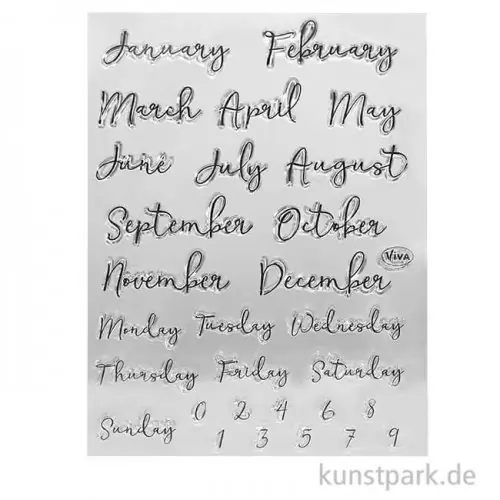 January February
March April May
June July August
September October
ViVA
November December
Monday Tuesday Wednesday
Thursday Friday Saturday
Sunday 0 2 4 6 8
1 3 5 7 9
kunstpark.de